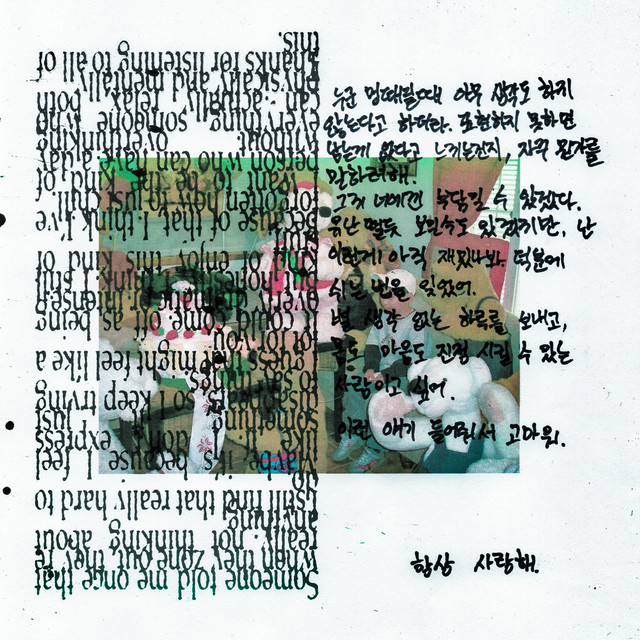 Someone told me once that
when they zone out, they're
really not thinking about
anything.
I still find that really hard to
do.
Maybe it's because I feel
like if I don't express
something, I'm just
useless, so I keep trying
to say things.
guess that might feel like a
lot to you.
It could come off as being
overly dramatic or intense,
but honestly, I think I still
kind of enjoy this kind of
Because of that I think I've
forgotten how to just chill.
I want to be the kind of
person who can have a day
without overthinking
everything, someone who
can actually relax both
physically and mentally.
Thanks for listening to all of
this.
누군 멍때릴때 아무 생각도 하지
않는다고 하더라. 표현하지 못하면
남는게 없다고 느끼는건지, 자꾸 뭔가를
말하려해.
그게 너에겐 부담일 수 있겠다.
유난 떨듯 보일수도 있겠지만, 난
이런게 아직 재밌나봐. 덕분에
쉬는 법을 잊었어.
별 생각 없는 하루를 보내고,
몸도 마음도 진정 시킬 수 있는
사람이고 싶어.
이런 얘기 들어줘서 고마워.
항상 사랑해.